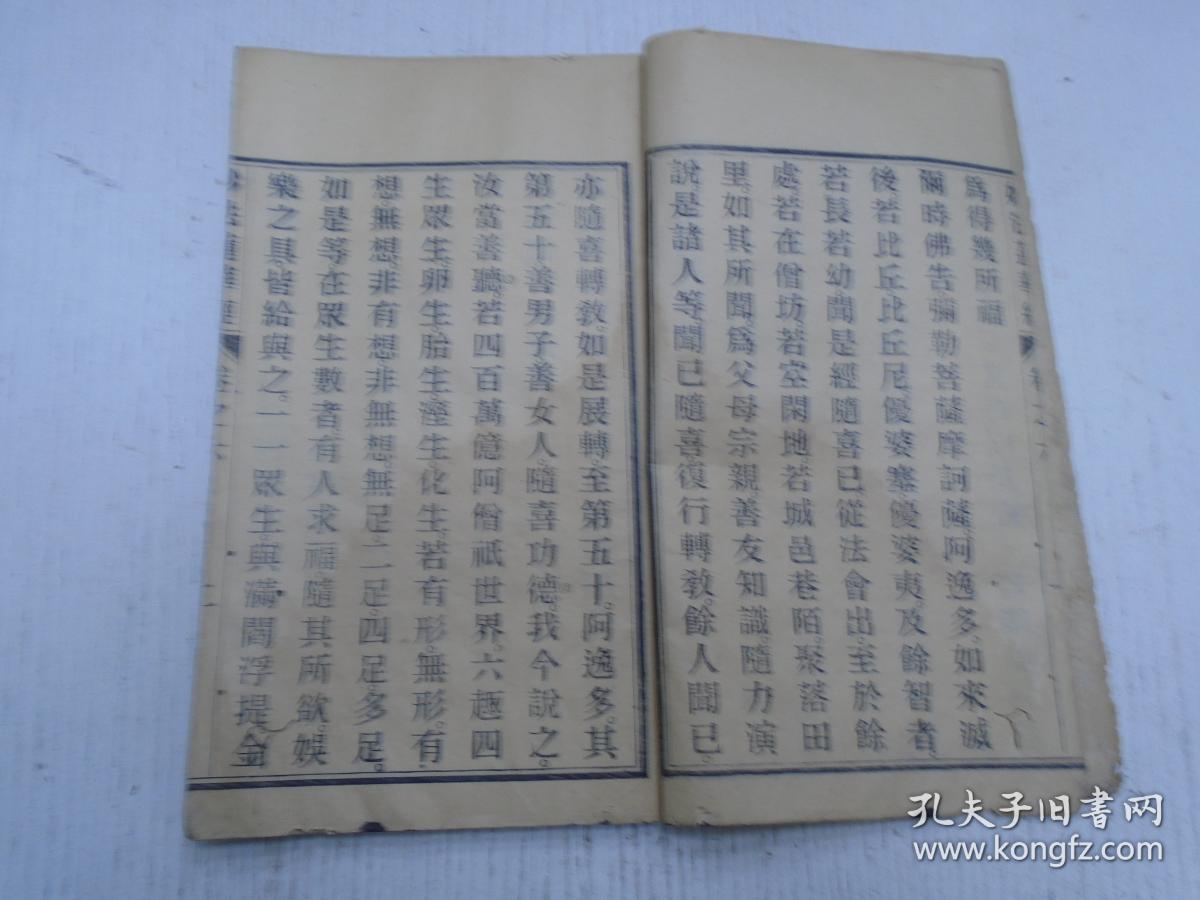 爲得幾所福
爾時佛告彌勒菩薩摩訶薩。阿逸多。如來滅
後若比丘比丘尼。優婆塞。優婆夷。及餘智者。
若長若幼聞是經隨喜已。從法會出。至於餘
處。若在僧坊。若空閑地。若城邑巷陌。聚落田
里。如其所聞。爲父母宗親。善友知識。隨力演
說。是諸人等。聞已隨喜。復行轉教。餘人聞已。
亦隨喜轉教。如是展轉。至第五十。阿逸多。其
第五十善男子善女人。隨喜功德。我今說之。
汝當善聽。若四百萬億阿僧祇世界。六趣四
生眾生。卵生。胎生。溼生。化生。若有形。無形。有
想。無想。非有想。非無想。無足。二足。四足。多足。
如是等在眾生數者。有人求福。隨其所欲。娛
樂之具。皆給與之。一一眾生。與滿閻浮提。金
孔夫子旧书网
www.kongfz.com